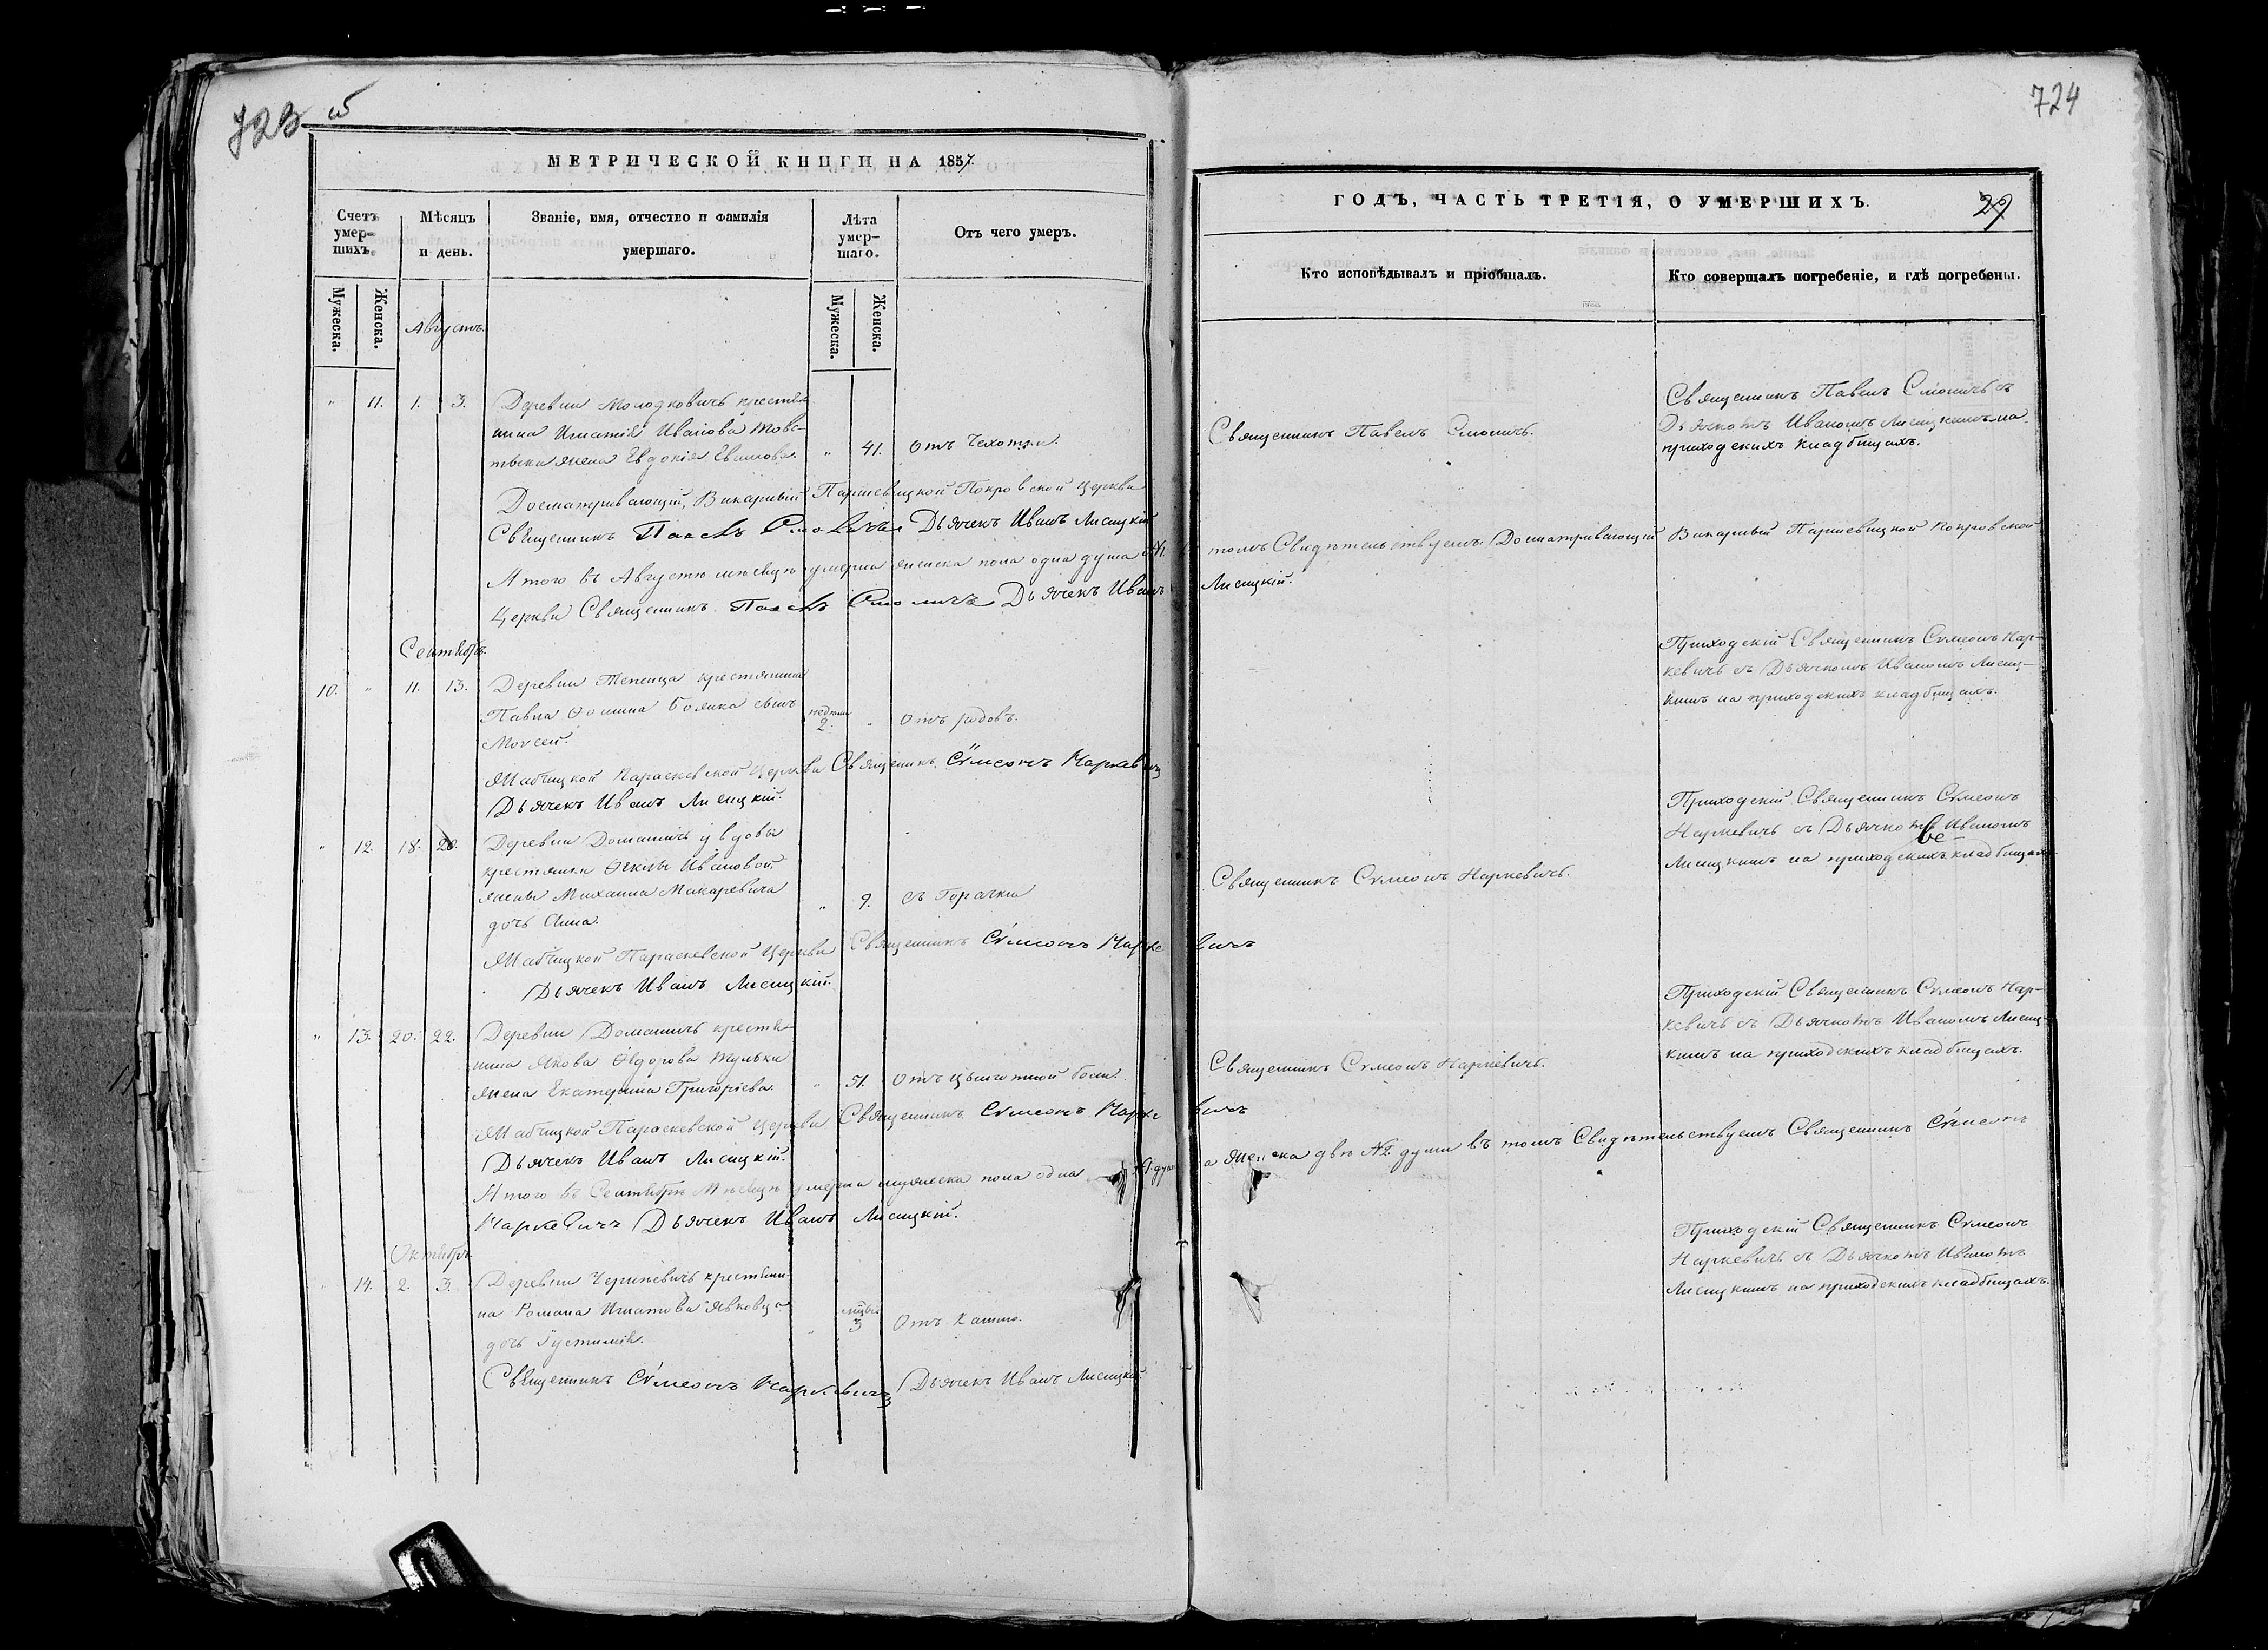 723 об
МЕТРИЧЕСКОЙ КНИГИ НА 1857.
Счетъ умер-шихъ.
Мѣсяцъ и день.
Званіе, имя, отчество и фамилія умершаго.
Лѣта умер-шаго.
Отъ чего умеръ.
Мужеска.
Женска.
Мужеска.
Женска.
Августъ.
" 11. 1. 3. Деревни Молодковичъ крестья-
нина Игнатія Иванова
жена Евдокія " 41. Отъ Чахотки.
Досматривающій, Викарный Паршевицкой Покровской Церкви
Священникъ Павелъ Смоличъ Дьячекъ Иванъ Лисицкій
Итого въ Августѣ мѣсяцѣ умерла женска пола одна душа №1
Церкви Священникъ Павелъ Смоличъ Дьячекъ Иванъ
Сентябрь.
10. " 11. 13. Деревни Тепенца крестьянина
Павла Фомина сынъ недели 2. " Отъ родовъ.
Моѵсей.
Жабчицкой Параскевской Церкви Священникъ Сѵмеонъ Наркевичъ
Дьячекъ Иванъ Лисицкій.
" 12. 18. 20. Деревни Домашичъ у вдовы
крестьянки Ѳеклы Ивановой
жены Михаила Макаревича " 9. съ Горячки
дочь Анна.
Жабчицкой Параскевской Церкви Священникъ Сѵмеонъ Наркевичъ
Дьячекъ Иванъ Лисицкій.
" 13. 20. 22. Деревни Домашичъ крестья-
нина Якова Ѳедорова
жена Екатерина Григоріева. " 51. Отъ цынготной боли.
Жабчицкой Параскевской Церкви Священникъ Сѵмеонъ Наркевичъ
Дьячекъ Иванъ Лисицкій.
Итого въ Сентябрѣ Мѣсяцѣ умерла мужеска пола одна №1. душа
Наркевичъ Дьячекъ Иванъ Лисицкій.
Октябрь
" 14. 2. 3. Деревни крестьяни-
на Романа Игнатова Явковца " мѣсяца 3 Отъ кашлю.
дочь Іустинія.
Священникъ Сѵмеонъ Наркевичъ Дьячекъ Иванъ Лисицкій
724
ГОДЪ, ЧАСТЬ ТРЕТІЯ, О УМЕРШИХЪ.
29
Кто исповѣдывалъ и пріобщалъ.
Кто совершалъ погребеніе, и гдѣ погребены.
Священникъ Павелъ Смоличъ.
Священникъ Павелъ Смоличъ съ
Дьячкомъ Иваномъ Лисицкимъ на
приходскихъ кладбищахъ.
въ томъ Свидѣтельствуемъ: Досматривающій Викарный Паршевицкой Покровской
Лисицкій.
Приходскій Священникъ Сѵмеонъ Нар-
кевичъ съ Дьячкомъ Иваномъ Лисиц-
кимъ на приходскихъ кладбищахъ.
Священникъ Сѵмеонъ Наркевичъ.
Приходскій Священникъ Сѵмеонъ
Наркевичъ съ Дьячкомъ Иваномъ
Лисицкимъ на приходскихъ кладбищахъ
Священникъ Сѵмеонъ Наркевичъ.
Приходскій Священникъ Сѵмеонъ Нар-
кевичъ съ Дьячкомъ Иваномъ Лисиц-
кимъ на приходскихъ кладбищахъ.
а женска двѣ №2 души въ томъ Свидѣтельствуемъ Священникъ Сѵмеонъ
Приходскій Священникъ Сѵмеонъ
Наркевичъ съ Дьячкомъ Иваномъ
Лисицкимъ на приходскихъ кладбищахъ.